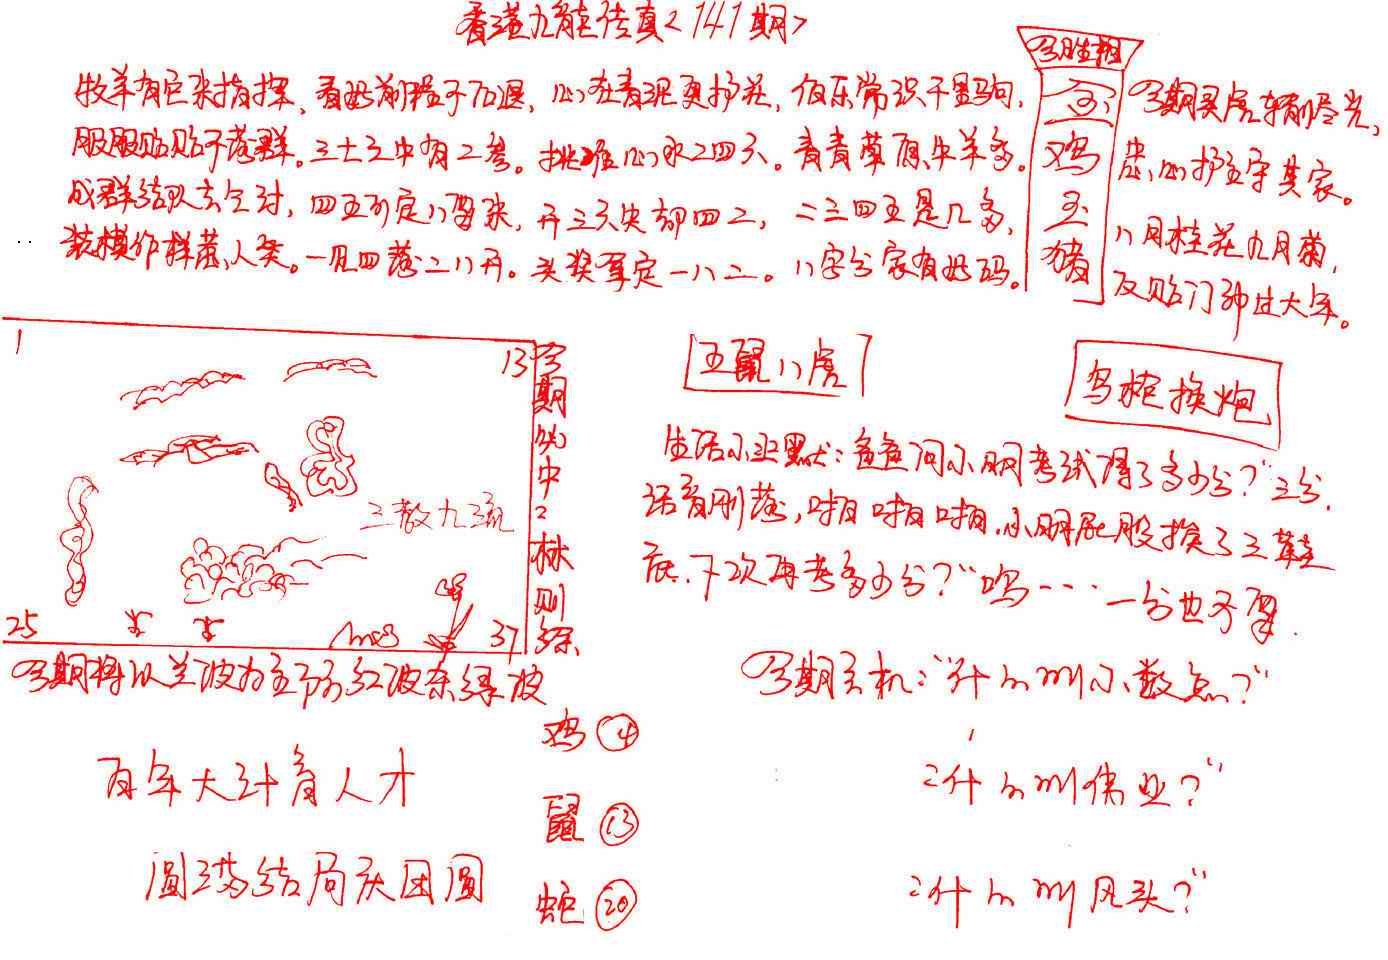 香港九龍传真<141期>
牧羊有巨来指挥，看此前程不后退，心在青泥更护花，伯乐常识千里驹，
服服贴贴不落群。三七之中有二参。挑准心水二四六。青青草原牛羊多。
成群结队去乞讨，四五可定八留来，开三六尖部四二，二三四五是几多，
装模作样荒人类。一见四落二八开。头奖军定一八二。八字分家有此码。
今期生相
鸡
玉
猪
今期买虎轿前尽光，
忠心护主守其家。
八月桂花九月菊，
反贴门神过大年。
1
13
三教九流
25
37
今期必中：林则徐、
今期特以兰波为主防红波杂绿波
五鼠八虎
鸟枪换炮
生活小幽默：爸爸问小明考试得了多少分？"三分，
话音刚落，啪啪啪，小明屁股挨了三鞋
底，下次再考多少分？"呜……一分也不要.
今期玄机："什么叫小数点？"
"什么叫伟业？"
"什么叫风头？"
百年大计育人才
圆满结局庆团圆
鸡 ④
鼠 ⑬
蛇 ⑳